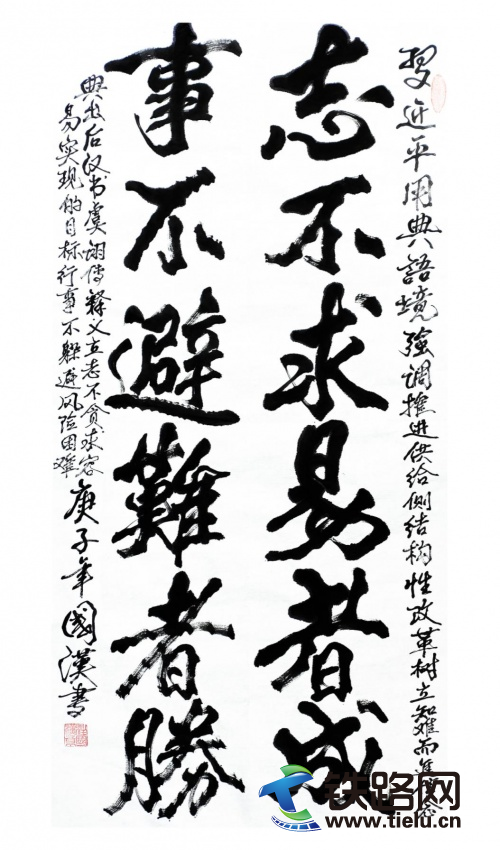 習近平用典語境強調推进供给侧结构性改革树立知难而進信念
志不求易者成
事不避難者勝
典出后汉书虞诩传释义立志不贪求容
易实现的目标行事不躲避风险困难
庚子年國漢書
铁路网
www.tielu.cn